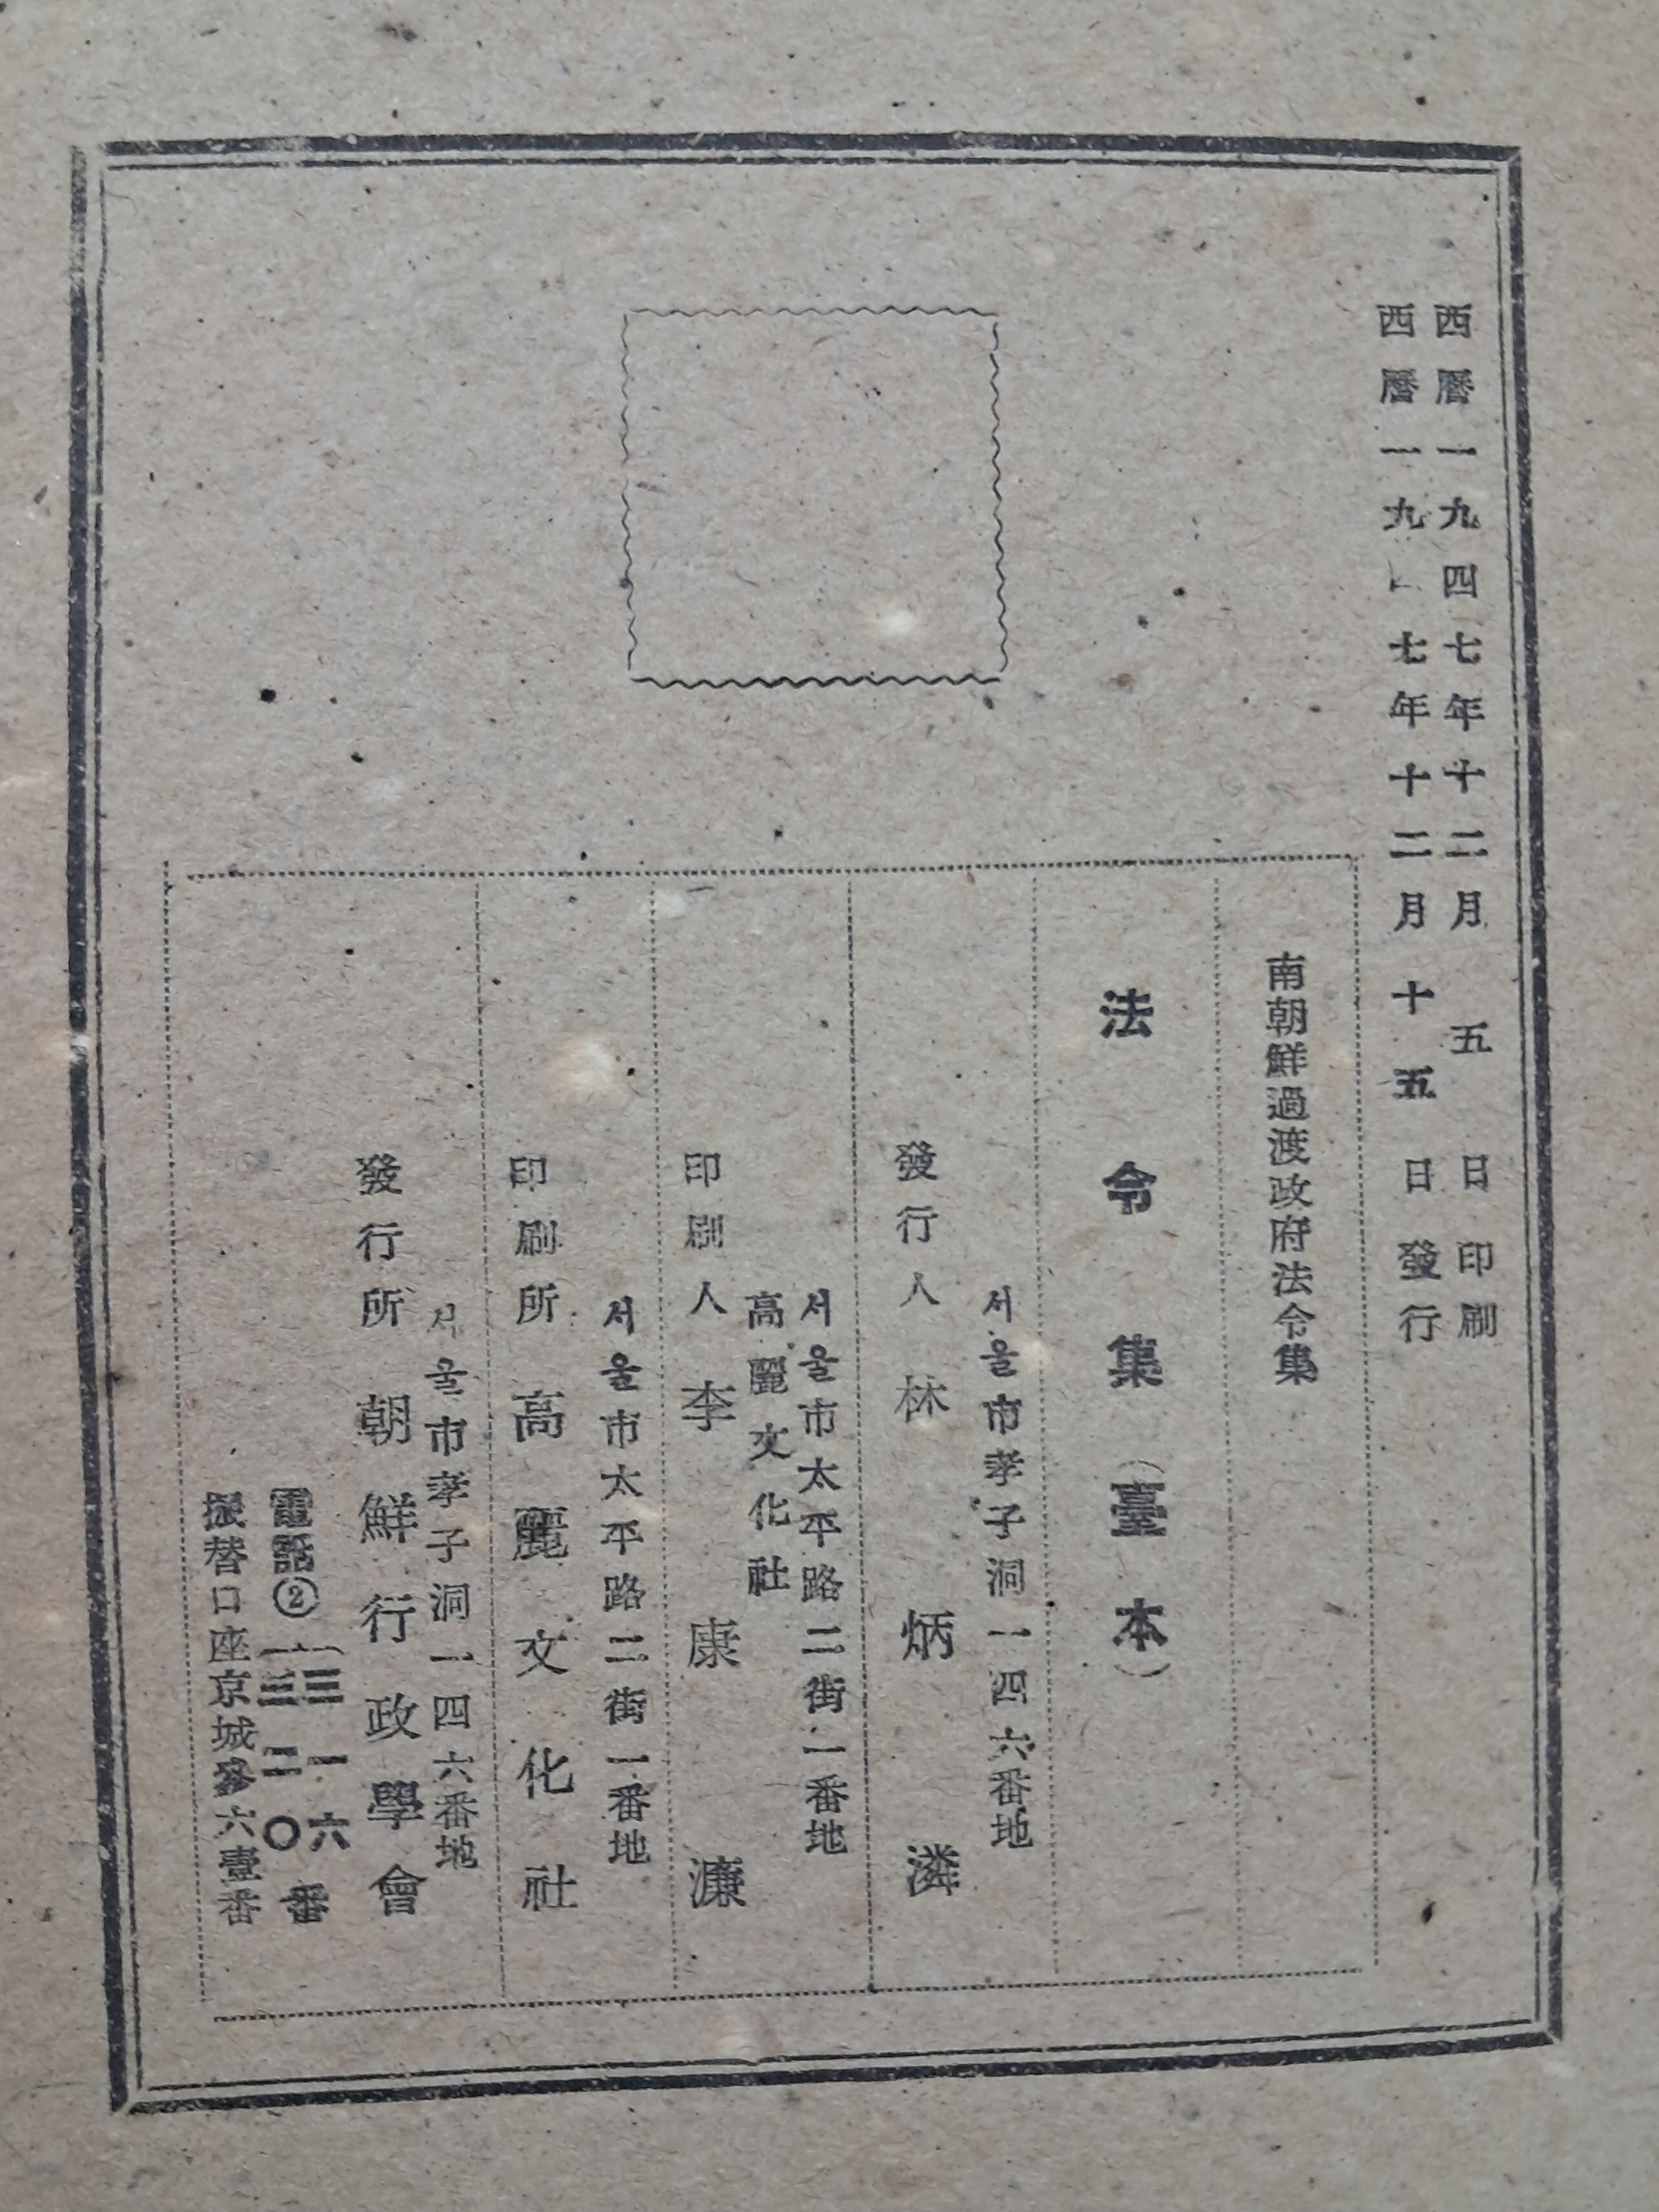 西曆一九四七年十二月 五 日印刷
西曆一九 七年十二月十五日發行
南朝鮮過渡政府法令集
法令集(臺本)
서울市孝子洞一四六番地
發行人 林炳潾
서울市太平路二街一番地
高麗文化社
印刷人 李康濂
서울市太平路二街一番地
印刷所 高麗文化社
서울市孝子洞一四六番地
發行所 朝鮮行政學會
電話②三一六番
三二〇
振替口座京城參六壹番